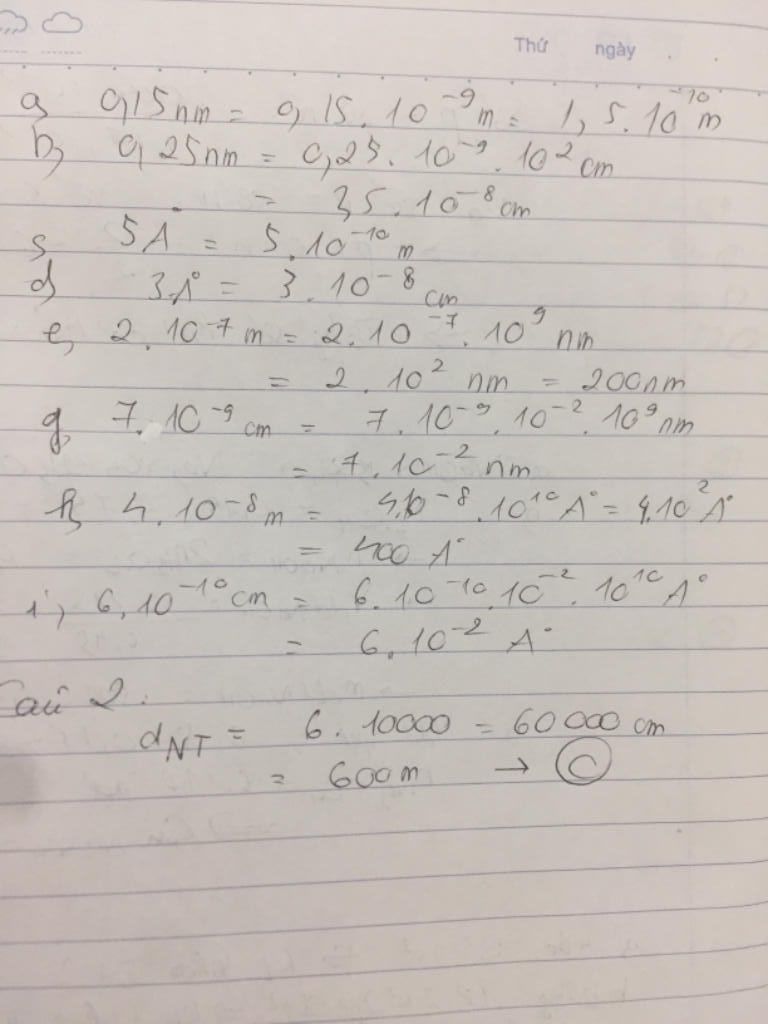 Thứ ngày
a, 0,15nm = 0,15.10⁻⁹m = 1,5.10⁻¹⁰m
b, 0,25nm = 0,25.10⁻⁹.10²cm
= 2,5.10⁻⁸cm
5Å = 5.10⁻¹⁰m
d, 3A° = 3.10⁻⁸cm
e, 2.10⁻⁷m = 2.10⁻⁷.10⁹nm
= 2.10²nm = 200nm
g, 7.10⁻⁹cm = 7.10⁻⁹.10⁻².10⁹nm
= 7.10⁻²nm
h, 4.10⁻⁸m = 4.10⁻⁸.10¹⁰A° = 4.10²A°
= 400 A°
i, 6.10⁻¹⁰cm = 6.10⁻¹⁰.10⁻².10¹⁰A°
= 6.10⁻² A°
Câu 2:
dNT = 6.10000 = 60000cm
= 600m → C